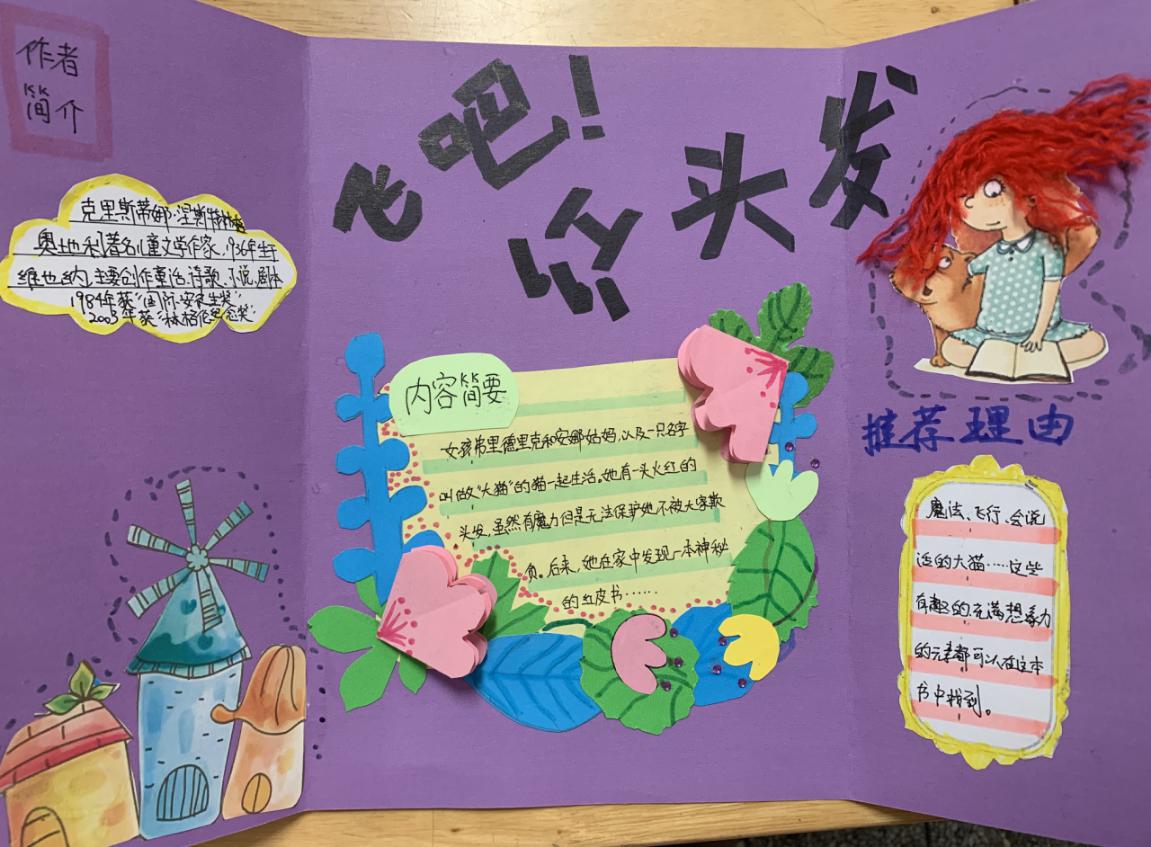 作者
简介
克里斯蒂娜·涅斯特林格
奥地利著名儿童文学作家,1936年生于
维也纳,主要创作童话、诗歌、小说、剧本
1984年获"国际安徒生奖"
2003年获"林格伦纪念奖"
飞吧!
红头发
内容简要
女孩弗里德里克和安娜姑妈,以及一只名字
叫做"大猫"的猫一起生活。她有一头火红的
头发,虽然有魔力但是无法保护她不被大家欺
负。后来,她在家中发现一本神秘
的红皮书……
推荐理由
魔法、飞行、会说
话的大猫……这些
有趣的,充满想象力
的元素都可以在这本
书中找到。